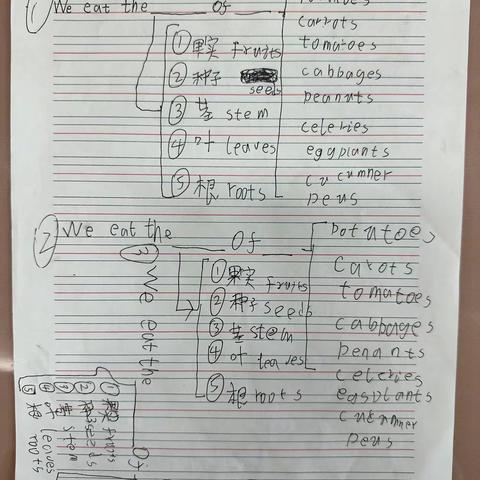 ① We eat the ____ Of
carrots
① 果实 fruits
tomatoes
② 种子 seeds
cabbages
③ 茎 stem
peanuts
celeries
④ 叶 leaves
eggplants
cucumner
⑤ 根 roots
peus
② We eat the ____ Of
potutoes
① 果实 fruits
carots
② 种子 seeds
tomatoes
③ 茎 stem
cabbages
④ 叶 leaves
penants
celeries
⑤ 根 roots
eagplants
peus
③ We eat the
Of
① 果实 fruits
② 种子 seeds
③ 茎 stem
④ 叶 leaves
⑤ 根 roots